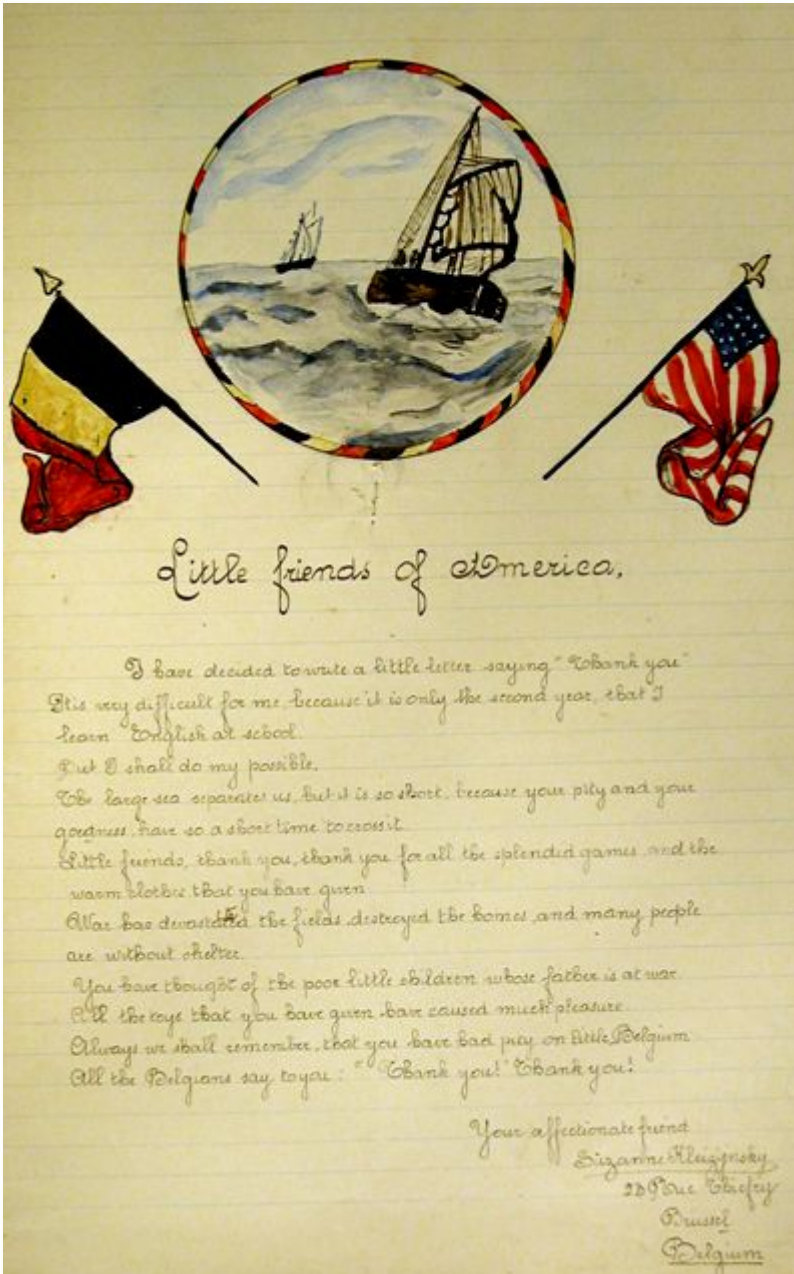 Little friends of America,
I have decided to write a little letter saying "Thank you"
It is very difficult for me, because it is only the second year, that I
learn English at school.
But I shall do my possible.
The large sea separates us, but it is so short, because your pity and your
goodness, have so a short time to cross it.
Little friends, thank you, thank you for all the splendid games, and the
warm clothes that you have given
War has devastated the fields, destroyed the homes, and many people
are without shelter.
You have thought of the poor little children whose father is at war
All the toys that you have given have caused much pleasure
Always we shall remember, that you have had pity on little Belgium
All the Belgians say to you: "Thank you!" Thank you!
Your affectionate friend
Suzanne
Rue Thiefry
Brussel
Belgium